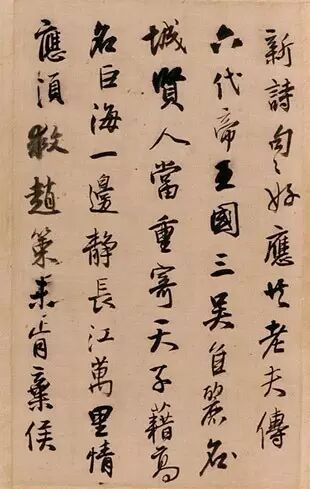 新詩句〻好應老夫傳
六代帝王國三吳自麗名
城賢人當重寄天子藉高
名巨海一邊靜長江萬里情
應須救趙策未肯棄侯